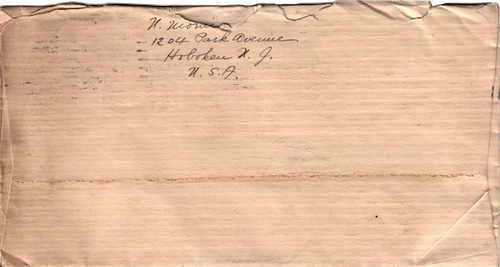 N.
1204 Park Avenue
Hoboken N. J.
U.S.A.